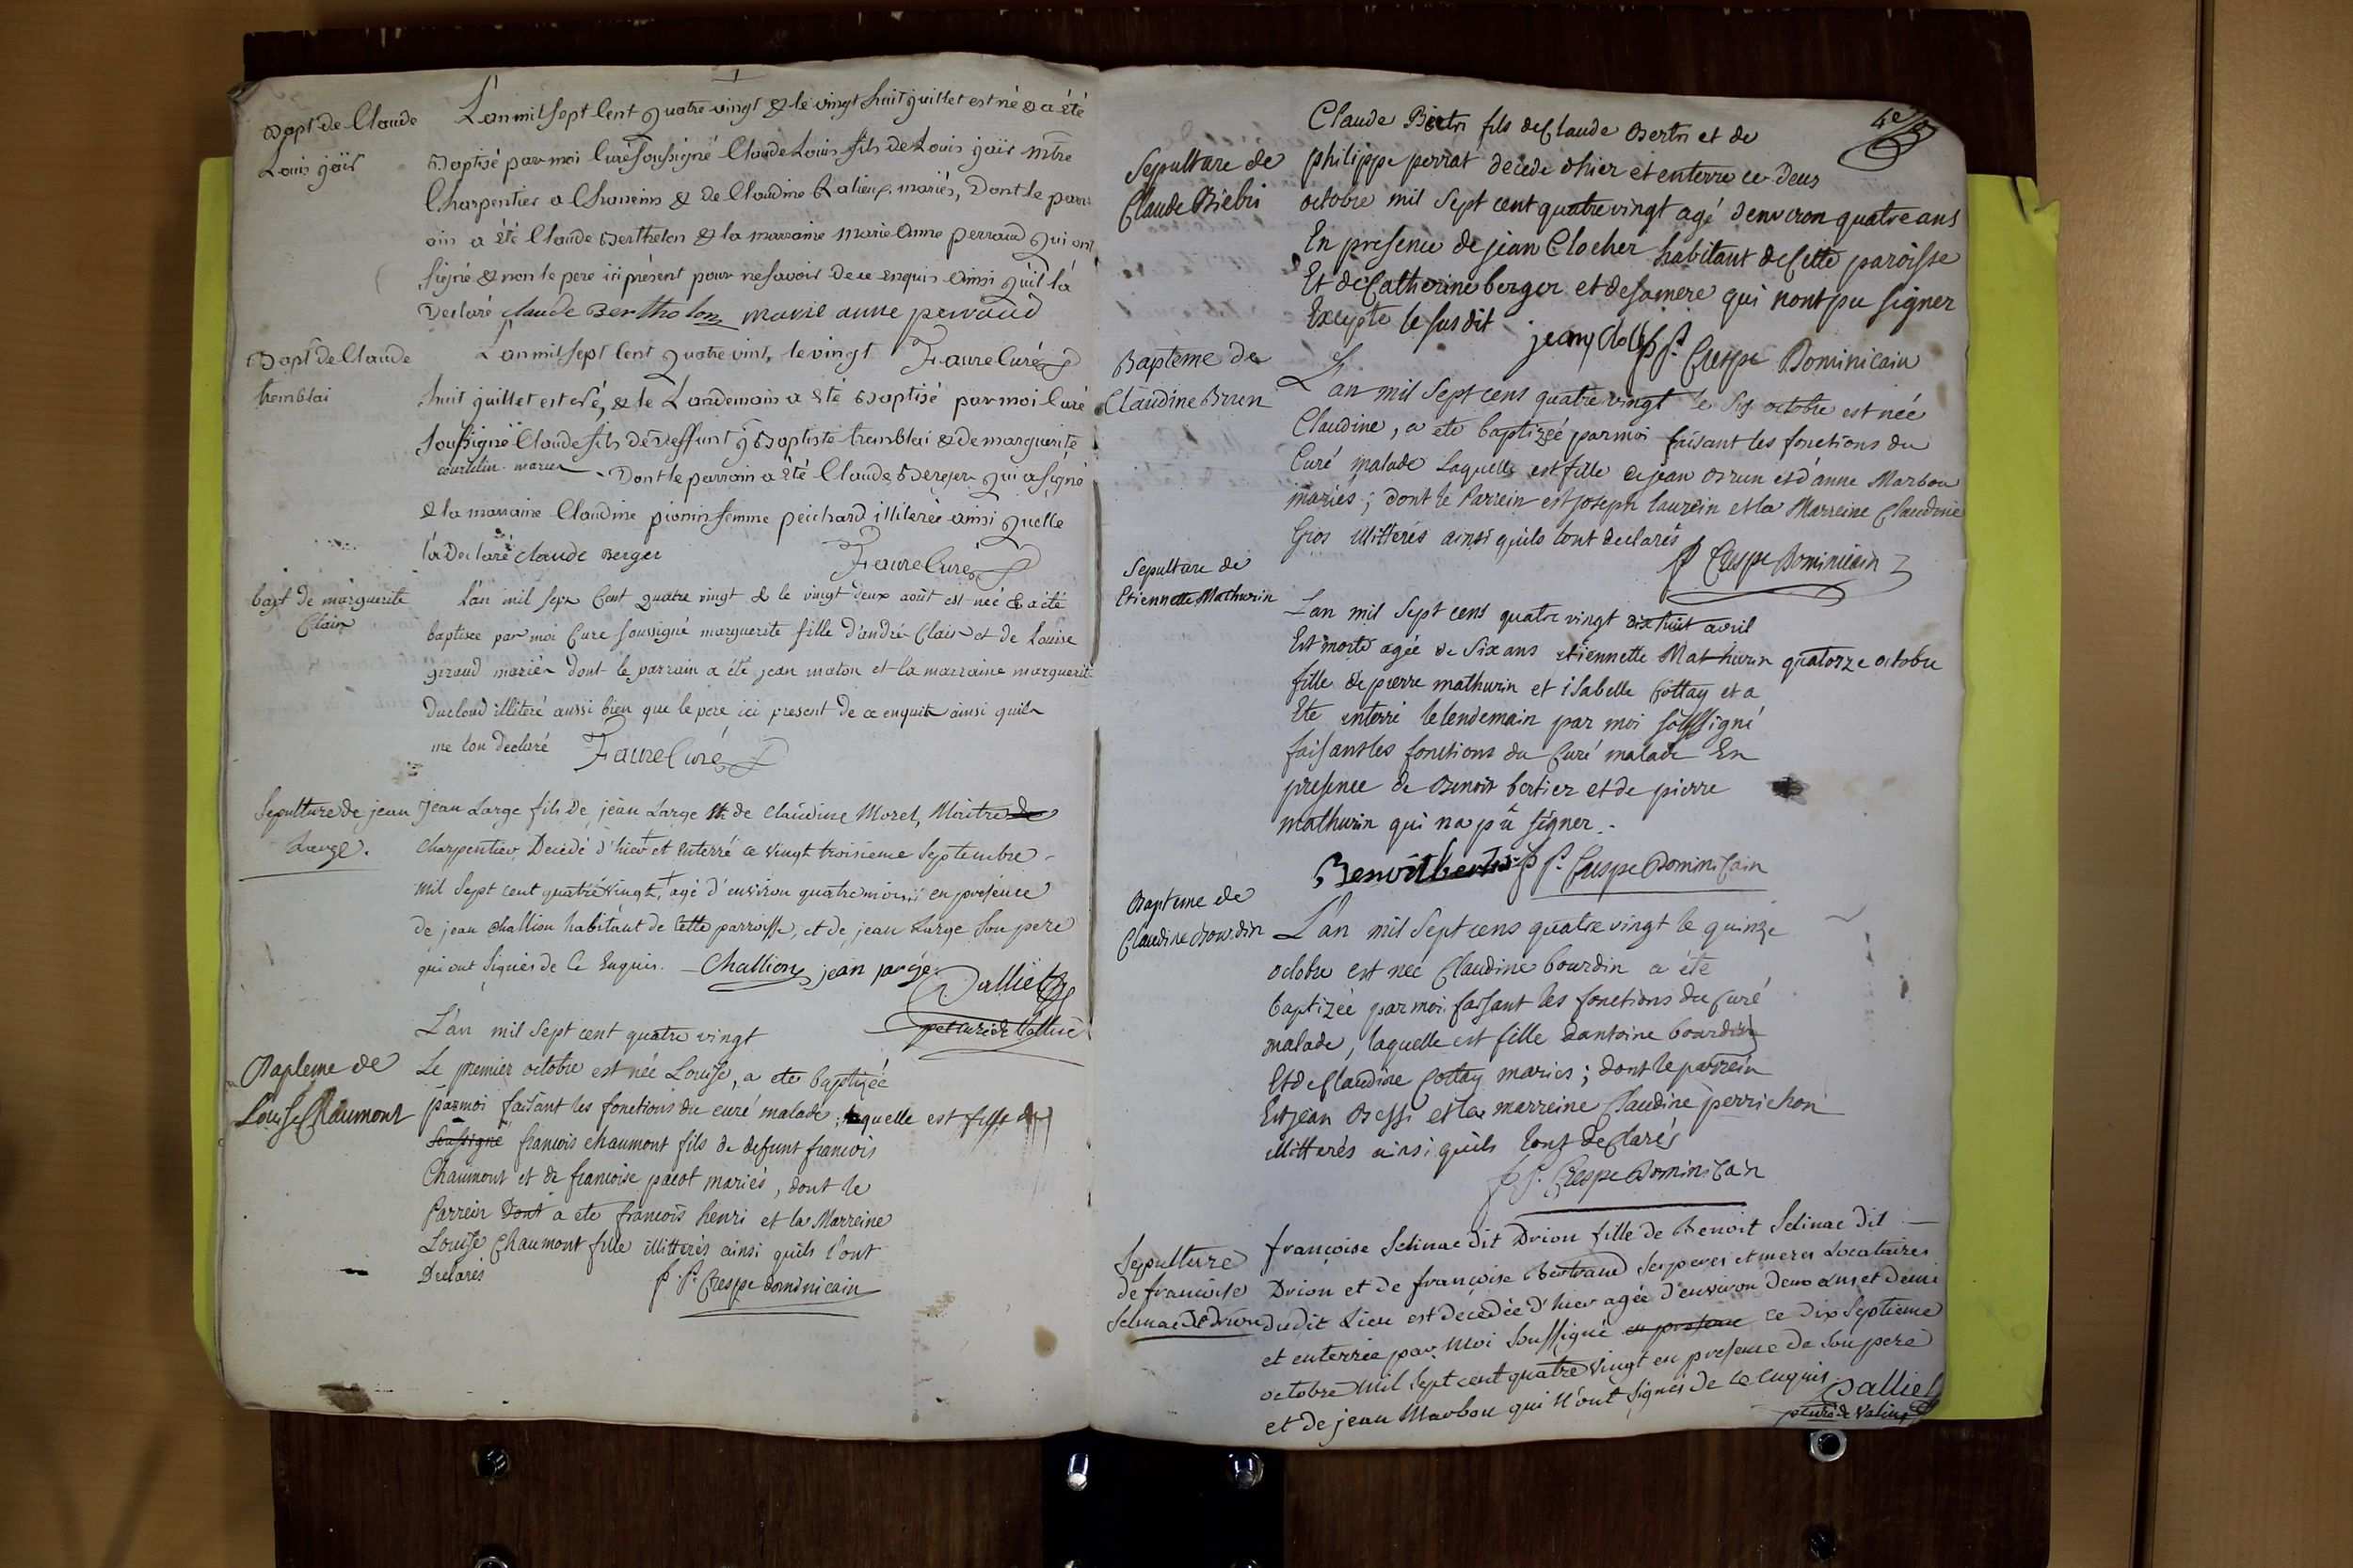 Bapt de Claude
Louis jaïr
L'an mil sept Cent quatre vingt & le vingt huit juillet est né & a été
Baptisé par moi Curé soussigné Claude Louis fils de Louis jaïr mtre
Charpentier a & de Claudine mariés, Dont le parr
ain a été Claude Berthelon & la marraine marie Anne perraud qui ont
signé & non le pere ici présent pour ne savoir de ce enquis ainsi qu'il l'a
Declaré claude Bertholon marie anne perraud
Faure Curé
Bapt de Claude
tremblai
L'an mil sept Cent quatre vint, le vingt
huit juillet est né, & le Landemain a été Baptisé par moi Curé
soussigné Claude fils de deffunt j Baptiste tremblai & de marguerite
mariés Dont le parrain a été Claude Berger qui a signé
& la marraine Claudine femme peichard illiterée ainsi quelle
l'a Declaré claude Berger
Faure Curé
bapt de marguerite
Clair
L'an mil sept Cent quatre vingt & le vingt deux août est née & a été
baptisee par moi Cure soussigné marguerite fille d'andré Clair et de Louise
giraud mariés dont le parrain a été jean maton et la marraine marguerite
Ducloud illiteré aussi bien que le pere ici present de ce enquis ainsi quils
me lon declaré Faure Curé
Sepulture de jean
Large.
Jean Large fils de jean Large et de Claudine Morel, Maitre de
charpentier Decedé d'hier et enterré ce vingt troisieme Septembre
mil Sept cent quatre vingt, agé d'environ quatre mois en presence
de jean challion habitant de cette parroisse, et de jean Large son pere
qui ont signés de ce enquis. Challion jean large
Dalliet
L'an mil sept cent quatre vingt
Bapteme de
Louise Chaumont
Le premier octobre est née Louise, a ete baptizée
par moi faisant les fonctions du curé malade; laquelle est fille de
soussigné francois chaumont fils de defunt francois
Chaumont et de francoise pacot mariés, dont le
Parrein Dont a ete francois henri et la Marreine
Louise Chaumont fille illitterés ainsi quils l'ont
Declarés
f. P. Crespe dominicain
4e
Sepulture de
Claude Biebri
Claude Bertri fils de Claude Bertri et de
philippe perrat decede d'hier et enterre ce deux
octobre mil Sept cent quatre vingt agé d'environ quatre ans
En presence de jean Clocher habitant de Cette paroisse
Et de Catherine berger et de sa mere qui nont pu signer
Excepte le susdit
P. Crespe Dominicain
Bapteme de
Claudine Brun
L'an mil Sept cens quatre vingt le six octobre est née
Claudine, a ete baptizée par moi faisant les fonctions du
Curé malade Laquelle est fille de jean Brun et d'anne Marbou
mariés; dont le Parrein est joseph laurein et la Marreine Claudine
Gros illitterés ainsi quils lont declarés
P Crespe Dominicain
Sepulture de
Etiennette Mathurin
L'an mil Sept cens quatre vingt dix huit avril
Est morte agée de Six ans etiennette Mathurin quatorze octobre
fille de pierre mathurin et isabelle Cottay et a
Ete enterré le lendemain par moi soussigné
faisant les fonctions du Curé malade En
presence de Benoit bertier et de pierre
mathurin qui na pû signer.
Benoit bertier f P. Crespe Dominicain
Bapteme de
Claudine Bourdin
L'an mil Sept cens quatre vingt le quinze
octobre est neé Claudine bourdin a éte
baptizée par moi faisant les fonctions du Curé
malade, laquelle est fille d'antoine bourdin
Et de Claudine Cottay mariés; dont le parrein
Est jean Bessi et la marreine Claudine perrichon
illitterés ainsi quils lont declarés
f. P. Crespe Dominicain
Sepulture
de francoise
Selinac dit Drion
françoise Selinac dit Drion fille de Benoit Selinac dit
Drion et de françoise Bertrand ses peres et meres Locataires
dudit Lieu est decedée d'hier agée d'environ deux ans et demi
et enterrée par Moi Soussigné en presence ce dix Septieme
octobre mil sept cent quatre vingt en presence de son pere
et de jean Marbou qui n'ont signés de ce enquis. Dalliet